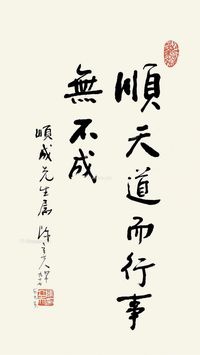 順天道而行事
無不成
順成先生属